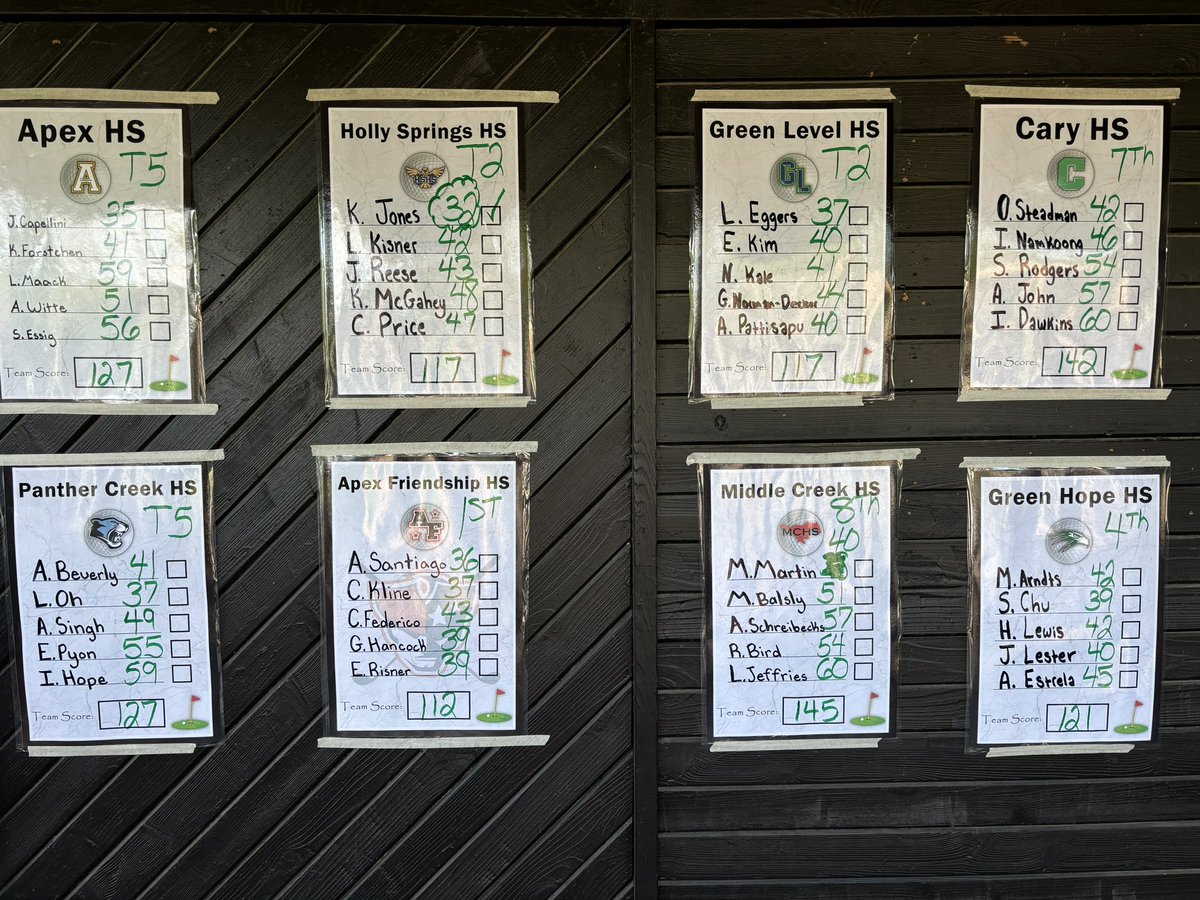 Apex HS
A
T5
J. Capellini 35
K. Forstchen 41
L. Maack 59
A. Witte 51
S. Essig 56
Team Score: 127
Holly Springs HS
HSHS
T2
K. Jones 32 ✓
L. Kisner 42
J. Reese 43
K. McGahey 48
C. Price 47
Team Score: 117
Green Level HS
GL
T2
L. Eggers 37
E. Kim 40
N. Kale 41
G. 44
A. Pattisapu 40
Team Score: 117
Cary HS
C
7Th
O. Steadman 42
I. Namkoong 46
S. Rodgers 54
A. John 57
I. Dawkins 60
Team Score: 142
Panther Creek HS
T5
A. Beverly 41
L. Oh 37
A. Singh 49
E. Pyon 55
I. Hope 59
Team Score: 127
Apex Friendship HS
AF
1ST
A. Santiago 36
C. Kline 37
C. Federico 43
G. Hancock 39
E. Risner 39
Team Score: 112
Middle Creek HS
MCHS
8Th
40
M. Martin
M. Balsly 51
A. Schreibecks 57
R. Bird 54
L. Jeffries 60
Team Score: 145
Green Hope HS
4Th
M. Arndts 42
S. Chu 39
H. Lewis 42
J. Lester 40
A. Estrela 45
Team Score: 121